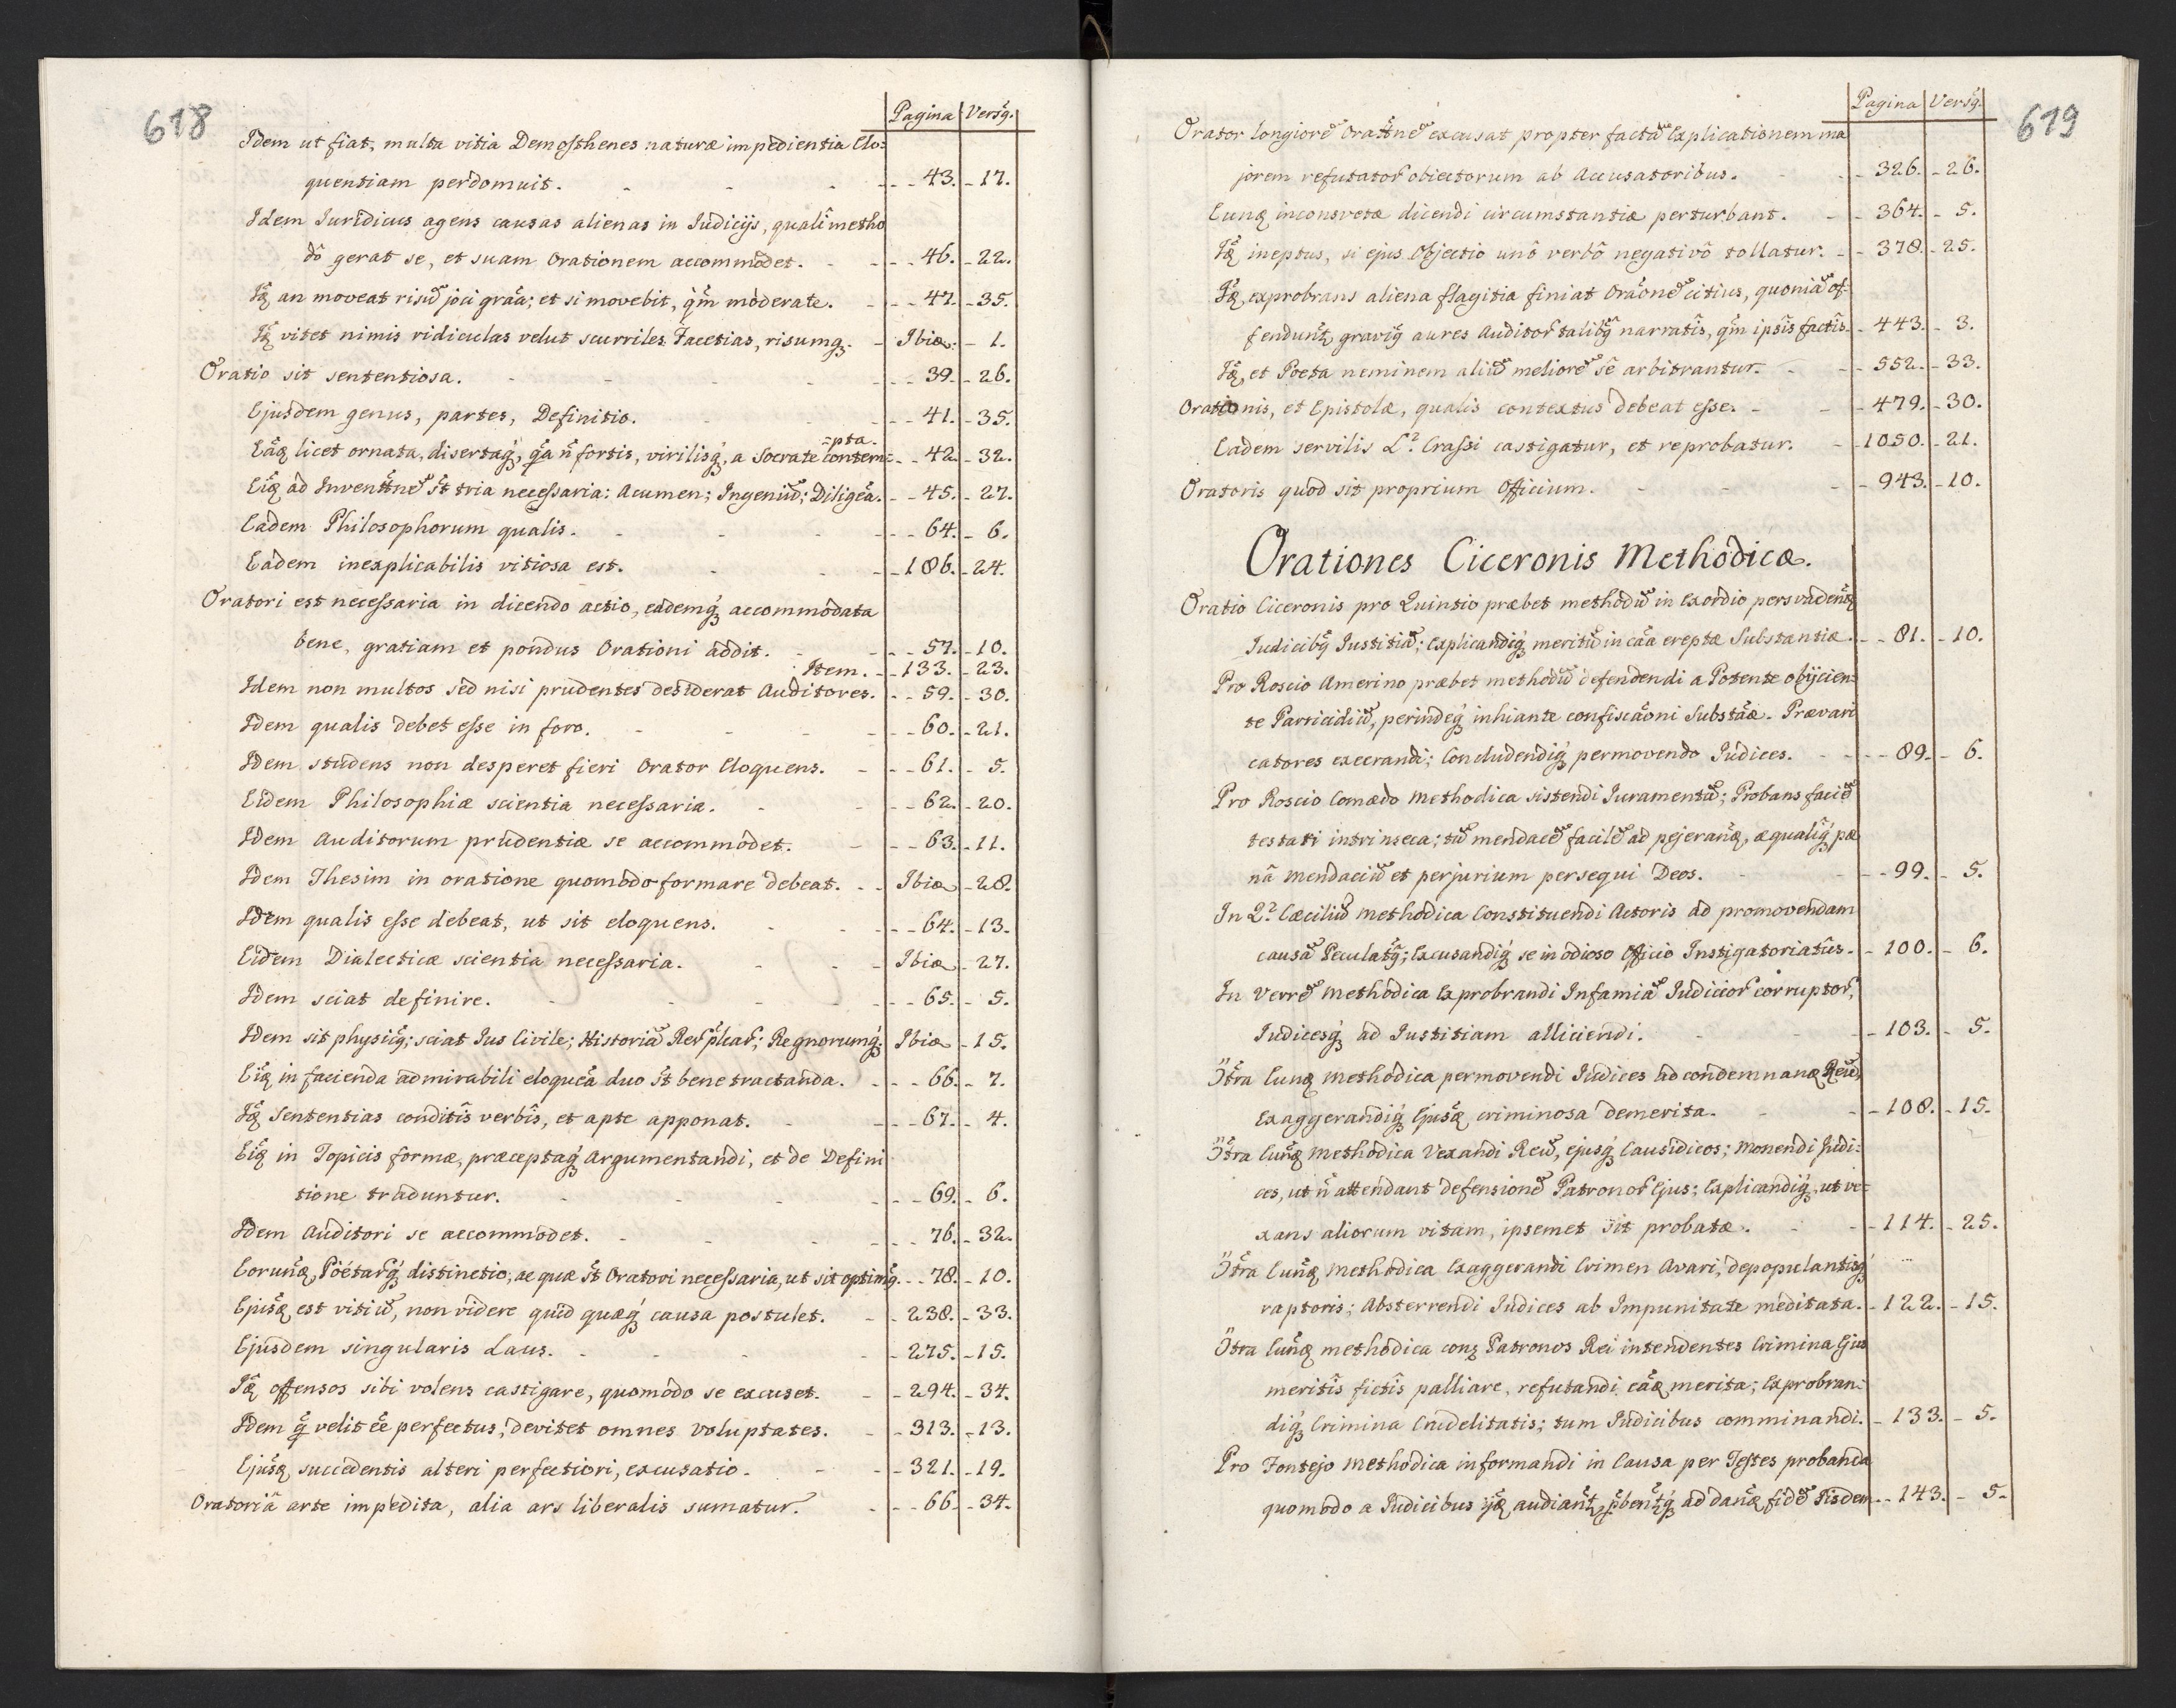 618
Pagina Versq̃.
Idem ut fiat, multa vitia Demosthenes naturæ impedientia Elo=
quentiam perdomuit. - - - 43. - 17.
Idem Iuridicus agens causas alienas in Iudicijs, quali metho
dô gerat se, et suam Orationem accommodet. - - 46. - 22.
Idẽ an moveat risũ joci grãa; et si movebit, qm̃ moderate. - - 47. - 35.
Idẽ vitet nimis ridiculas velut scurriles Facetias, risumq́. - Ibid. - 1.
Oratio sit sententiosa. - - - 39. - 26.
Ejusdem genus, partes, Definitio. - - 41. - 35.
=pta.
Eãd licet ornata, disertaq́, qa ñ fortis, virilisq́, a Socrate contem= - 42. - 32.
Eid ad Inventnẽ st̃ tria necessaria: Acumen; Ingeniũ; Diligẽa. - 45. - 27.
Eadem Philosophorum qualis. - - - 64. - 6.
Eadem inexplicabilis vitiosa est. - - 186. - 24.
Oratori est necessaria in dicendo actio, eademq́ accommodata
bene, gratiam et pondus Orationi addit. - - 57. - 10.
Item. - 133. - 23.
Idem non multos sed nisi prudentes desiderat Auditores. - - 59. - 30.
Idem qualis debet esse in foro. - - - 60. - 21.
Idem studens non desperet fieri Orator Eloquens. - - 61. - 5.
Eidem Philosophiæ scientia necessaria. - - 62. - 20.
Idem Auditorum prudentiæ se accommodet. - - 63. - 11.
Idem Thesim in oratione quomodo formare debeat. - - Ibid - 28.
Idem qualis esse debeat, ut sit eloquens. - - 64. - 13.
Eidem Dialecticæ scientia necessaria. - - Ibid - 27.
Idem sciat definire. - - - 65. - 5.
Idem sit physicq̃; sciat Ius Civile; Historiã Rer̃ plcar̃; Regnorumq́. Ibid - 15.
Eid in facienda admirabili eloquẽa duo st̃ bene tractanda. - - 66. - 7.
Idẽ Sententias conditîs verbîs, et apte apponat. - - 67. - 4.
Eid in Topicis formæ, præceptaq́ Argumentandi, et de Defini
tione traduntur. - - - 69. - 6.
Idem Auditori se accommodet. - - - 76. - 32.
Eorund, Poëtarq́, distinctio, ac quæ st̃ Oratori necessaria, ut sit optimq̃. - - 78. - 10.
Ejusd est vitiũ, non videre quid quæq́ causa postulet. - - 238. - 33.
Ejusdem singularis Laus. - - - 275. - 15.
Idẽ offensos sibi volens castigare, quomodo se excuset. - - 294. - 34.
Idem q̃ velit ẽe perfectus, devitet omnes voluptates. - - 313. - 13.
Ejusd succedentis alteri perfectiori, excusatio. - - 321. - 19.
Oratoriã arte impedita, alia ars liberalis sumatur. - - 66. - 34.
619
Pagina Versq̃.
Orator longiorẽ Oratnẽ excusat propter factã Explicationem ma
jorem refutator̃ obiectorum ab Accusatoribus. - - 326. - 26.
Eund inconsvetæ dicendi circumstantiæ perturbant. - - 364. - 5.
Idẽ ineptus, si ejus Objectio unô verbô negativô tollatur. - - 378. - 25.
Idẽ, exprobrans aliena flagitia finiat Orãonẽ citius, quoniã of=
fendunt̃ graviq̃ aures Auditor̃ talibq̃ narratîs, qm̃ ipsîs factîs. - 443. - 3.
Idẽ, et Poeta neminem aliũ meliorẽ sẽ arbitrantur. - - 552. - 33.
Orationis, et Epistolæ, qualis contextus debeat esse. - - 479. - 30.
Eadem servilis L? Crassi castigatur, et reprobatur. - 1050. - 21.
Oratoris quod sit proprium Officium. - - 943. - 10.
Orationes Ciceronis Methodicæ.
Oratio Ciceronis pro Quintio præbet methodũ in Exordio persvadend
Iudicibq̃ Iustitiã; Explicandiq́ meritũ in cãa ereptæ Substantiæ. - - 81. - 10.
Pro Roscio Amerino præbet methodũ defendendi a Potente obijcien=
te Parricidiũ, perindeq́ inhiante confiscãoni Substãæ. Prævari
catores execrandi; Concludendiq́ permovendo Iudices. - - 89. - 6.
Pro Roscio Comædo Methodica sistendi Iuramentũ; Probans faciẽ
testari intrinseca; tũ mendacẽ facilẽ ad pejerand, æqualiq́ pæ
nâ Mendaciũ et perjurium persequi Deos. - - 99. - 5.
In Q? Cæciliũ methodica Constituendi Actoris ad promovendam
causã Peculatq̃; Excusandiq́ se in odioso Officio Instigatoriatûs. - 100. - 6.
In Verrẽ Methodica Exprobrandi Infamiã Iudicior̃ corruptor̃,
Iudicesq́ ad Iustitiam alliciendi. - - 103. - 5.
Õtra Eund methodica permovendi Iudices ad condemnand Reũ,
Exaggerandiq́ Ejusd criminosa demerita. - - 108. - 15.
Õtra Eund Methodica Vexandi Reũ, ejusq́ Causidicos; Monendi Iudi=
ces, ut ñ attendant defensionẽ Patronor̃ Ejus; Explicandiq́, ut ve=
xans aliorum vitam, ipsemet sit probatæ. - - 114. - 25.
Õtra Eund Methodica Exaggerandi Crimen Avari, depopulantisq́
raptoris; Absterrendi Iudices ab Impunitate meditata. - 122. - 15.
Õtra Eund methodica con₃ Patronos Rei intendentes Crimina Ejus
meritîs fictîs palliare, refutandi eãd merita; Exprobran=
diq́ Crimina Crudelitatis; tum Iudicibus comminandi. - 133. - 5.
Pro Fontejo Methodica informandi in Causa per Testes probanda
quomodo a Iudicibus ijd audiant̃, p̃bent̃q́ ad dand fidẽ iisdem - 143. - 5.